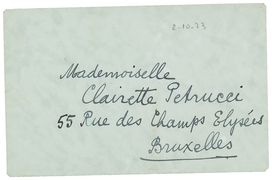 2-10-23
Mademoiselle
Clairette Petrucci
55 Rue des Champs Elysées
Bruxelles